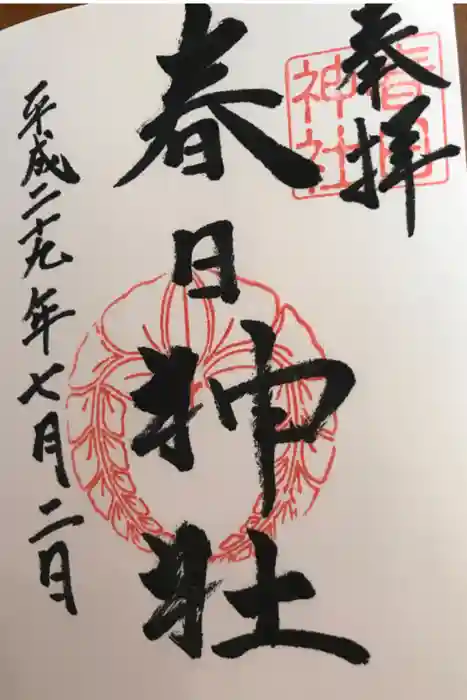 奉拝
春日神社
春日神社
平成二十九年七月二日